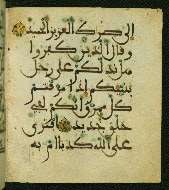 إلى صرط العزيز الحميد
وقال الذين كفروا
هل ندلكم على رجل
ينبئكم إذا مزقتم
كل ممزق إنكم لفي
خلق جديد أفترى
على الله كذبا أم به